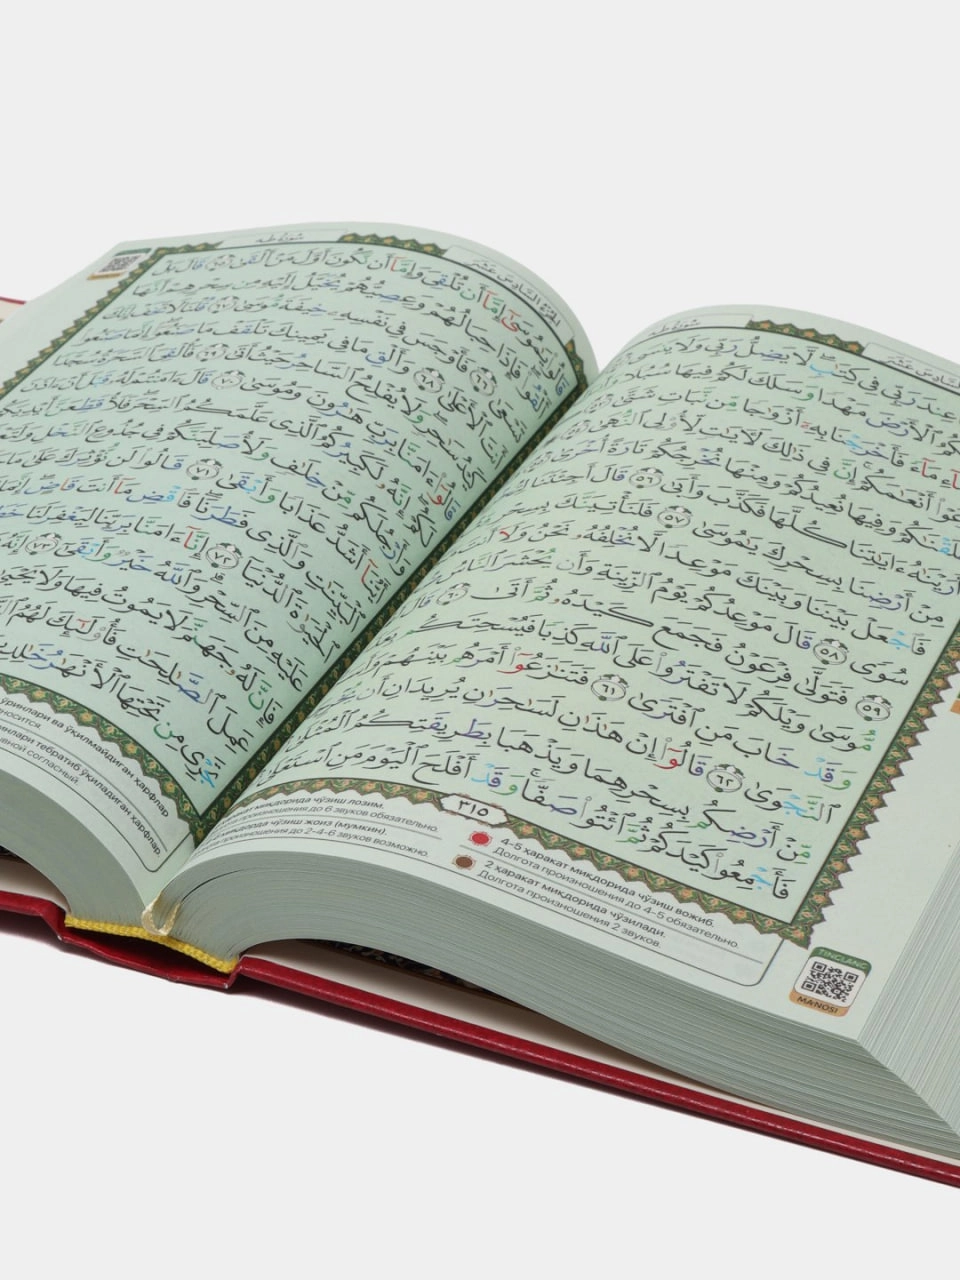 سُورَةُ طه
عِندَ رَبِّي فِي كِتَٰبٍ لَّا يَضِلُّ رَبِّي وَلَا يَنسَى
لَكُمُ ٱلْأَرْضَ مَهْدًا وَسَلَكَ لَكُمْ فِيهَا سُبُلًا
مَآءً فَأَخْرَجْنَا بِهِۦٓ أَزْوَٰجًا مِّن نَّبَاتٍ شَتَّىٰ
أَنْعَٰمَكُمْ إِنَّ فِي ذَٰلِكَ لَأٓيَٰتٍ لِّأُو۟لِي ٱلنُّهَىٰ
وَفِيهَا نُعِيدُكُمْ وَمِنْهَا نُخْرِجُكُمْ تَارَةً أُخْرَىٰ
أَرَيْنَٰهُ ءَايَٰتِنَا كُلَّهَا فَكَذَّبَ وَأَبَىٰ ٥٦ قَالَ أَجِئْتَنَا
مِنْ أَرْضِنَا بِسِحْرِكَ يَٰمُوسَىٰ ٥٧ فَلَنَأْتِيَنَّكَ
فَٱجْعَلْ بَيْنَنَا وَبَيْنَكَ مَوْعِدًا لَّا نُخْلِفُهُۥ نَحْنُ وَلَآ
سُوًى ٥٨ قَالَ مَوْعِدُكُمْ يَوْمُ ٱلزِّينَةِ وَأَن يُحْشَرَ ٱلنَّاسُ
٥٩ فَتَوَلَّىٰ فِرْعَوْنُ فَجَمَعَ كَيْدَهُۥ ثُمَّ أَتَىٰ ٦٠ قَالَ
مُّوسَىٰ وَيْلَكُمْ لَا تَفْتَرُوا۟ عَلَى ٱللَّهِ كَذِبًا فَيُسْحِتَكُم
وَقَدْ خَابَ مَنِ ٱفْتَرَىٰ ٦١ فَتَنَٰزَعُوٓا۟ أَمْرَهُم بَيْنَهُمْ
ٱلنَّجْوَىٰ ٦٢ قَالُوٓا۟ إِنْ هَٰذَٰنِ لَسَٰحِرَٰنِ يُرِيدَانِ أَن
مِّنْ أَرْضِكُم بِسِحْرِهِمَا وَيَذْهَبَا بِطَرِيقَتِكُمُ ٱلْمُثْلَىٰ
فَأَجْمِعُوا۟ كَيْدَكُمْ ثُمَّ ٱئْتُوا۟ صَفًّا وَقَدْ أَفْلَحَ ٱلْيَوْمَ مَنِ ٱسْتَعْلَىٰ
٣١٥
миқдорида чўзиш лозим.
произношения до 6 звуков обязательно.
миқдорида чўзиш жоиз (мумкин).
произношения до 2-4-6 звуков возможно.
4-5 ҳаракат миқдорида чўзиш вожиб.
Долгота произношения до 4-5 обязательно.
2 ҳаракат миқдорида чўзилади.
Долгота произношения 2 звуков.
TINGLANG
MA'NOSI
سُورَةُ طه
الجُزْءُ السَّادِسَ عَشَرَ
يَٰمُوسَىٰٓ إِمَّآ أَن تُلْقِيَ وَإِمَّآ أَن نَّكُونَ أَوَّلَ مَنْ أَلْقَىٰ ٦٥ قَالَ بَلْ
فَإِذَا حِبَالُهُمْ وَعِصِيُّهُمْ يُخَيَّلُ إِلَيْهِ مِن سِحْرِهِمْ أَنَّهَا
٦٦ فَأَوْجَسَ فِي نَفْسِهِۦ خِيفَةً مُّوسَىٰ ٦٧ قُلْنَا لَا تَخَفْ إِنَّكَ
ٱلْأَعْلَىٰ ٦٨ وَأَلْقِ مَا فِي يَمِينِكَ تَلْقَفْ مَا صَنَعُوٓا۟ إِنَّمَا صَنَعُوا۟
وَلَا يُفْلِحُ ٱلسَّاحِرُ حَيْثُ أَتَىٰ ٦٩ فَأُلْقِيَ ٱلسَّحَرَةُ سُجَّدًا
ءَامَنَّا بِرَبِّ هَٰرُونَ وَمُوسَىٰ ٧٠ قَالَ ءَامَنتُمْ لَهُۥ قَبْلَ أَنْ ءَاذَنَ
إِنَّهُۥ لَكَبِيرُكُمُ ٱلَّذِي عَلَّمَكُمُ ٱلسِّحْرَ فَلَأُقَطِّعَنَّ أَيْدِيَكُمْ
مِّنْ خِلَٰفٍ وَلَأُصَلِّبَنَّكُمْ فِي جُذُوعِ ٱلنَّخْلِ
أَشَدُّ عَذَابًا وَأَبْقَىٰ ٧١ قَالُوا۟ لَن نُّؤْثِرَكَ عَلَىٰ مَا
ٱلْبَيِّنَٰتِ وَٱلَّذِي فَطَرَنَا فَٱقْضِ مَآ أَنتَ قَاضٍ
ٱلدُّنْيَآ ٧٢ إِنَّآ ءَامَنَّا بِرَبِّنَا لِيَغْفِرَ لَنَا
عَلَيْهِ مِنَ ٱلسِّحْرِ وَٱللَّهُ خَيْرٌ وَأَبْقَىٰٓ ٧٣ إِنَّهُۥ
فَإِنَّ لَهُۥ جَهَنَّمَ لَا يَمُوتُ فِيهَا وَلَا يَحْيَىٰ
عَمِلَ ٱلصَّٰلِحَٰتِ فَأُو۟لَٰٓئِكَ لَهُمُ
تَجْرِي مِن تَحْتِهَا ٱلْأَنْهَٰرُ خَٰلِدِينَ
ўринлари ва ўқилмайдиган ҳарфлар
тебратиб ўқиладиган ҳарфлар
согласный.